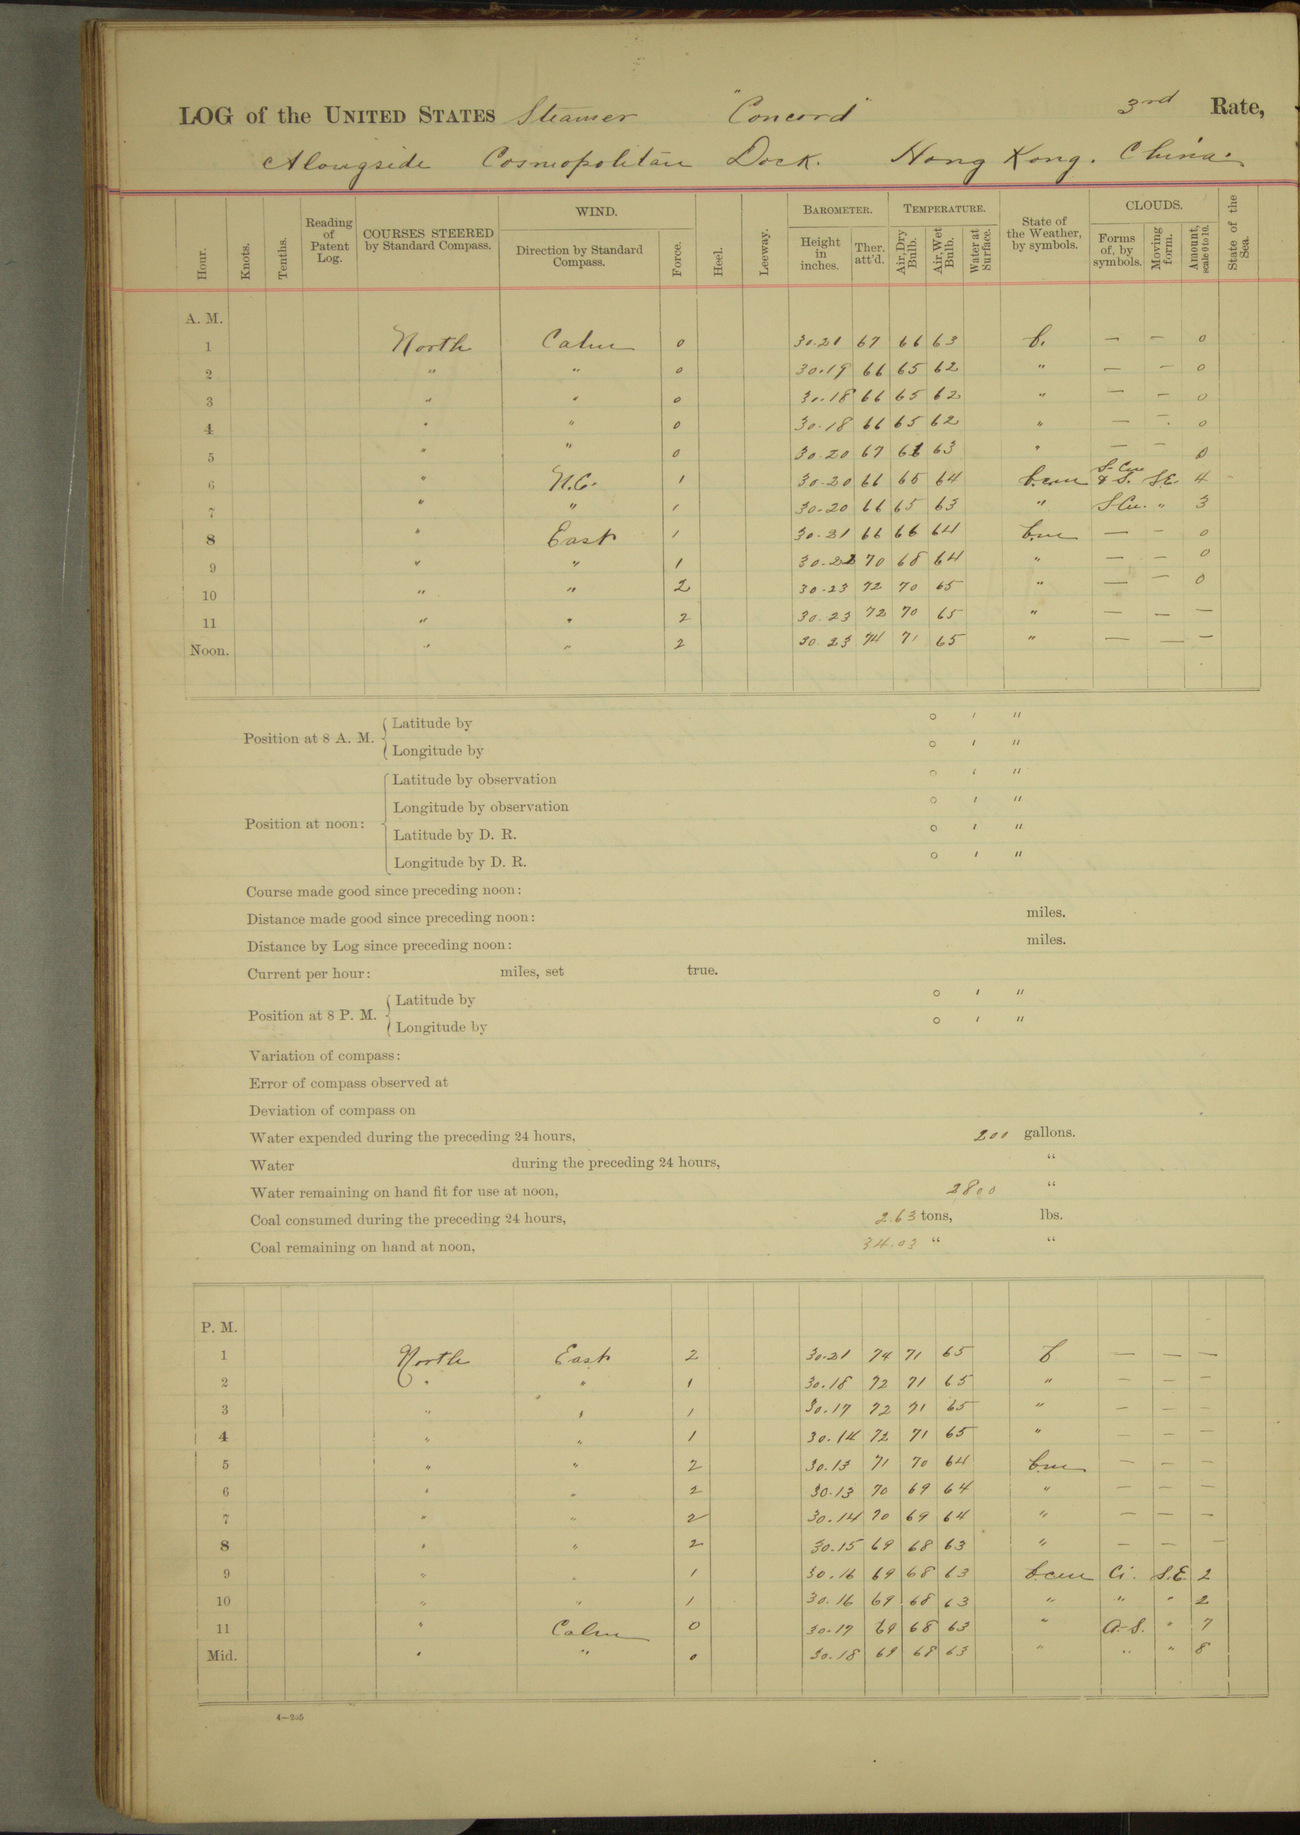 LOG of the UNITED STATES Steamer "Concord" 3rd Rate,
Alongside Cosmopolitan Dock. Hong Kong. China.
Hour. Knots. Tenths. Reading of Patent Log. COURSES STEERED by Standard Compass. WIND. Direction by Standard Compass. Force. Heel. Leeway. BAROMETER. Height in inches. Ther. att'd. TEMPERATURE. Air, Dry Bulb. Air, Wet Bulb. Water at Surface. State of the Weather, by symbols. CLOUDS. Forms of, by symbols. Moving form. Amount, scale 0 to 10. State of the Sea.
A. M.
1 North Calm 0 30.21 67 66 63 b. — — 0
2 " " 0 30.19 66 65 62 " — — 0
3 " " 0 30.18 66 65 62 " — — 0
4 " " 0 30.18 66 65 62 " — — 0
5 " " 0 30.20 67 63 " — — 0
6 " N.E. 1 30.20 66 65 64 b.c.m S-Cu & S. S.E. 4 -
7 " " 1 30.20 66 65 63 " S-Cu. " 3
8 " East 1 30.21 66 66 64 b.m — — 0
9 " " 1 30.22 70 68 64 " — — 0
10 " " 2 30.23 72 70 65 " — — 0
11 " " 2 30.23 72 70 65 " — — —
Noon. " " 2 30.23 74 71 65 " — — —
Position at 8 A. M. Latitude by ° ′ ″
Longitude by ° ′ ″
Position at noon: Latitude by observation ° ′ ″
Longitude by observation ° ′ ″
Latitude by D. R. ° ′ ″
Longitude by D. R. ° ′ ″
Course made good since preceding noon:
Distance made good since preceding noon: miles.
Distance by Log since preceding noon: miles.
Current per hour: miles, set true.
Position at 8 P. M. Latitude by ° ′ ″
Longitude by ° ′ ″
Variation of compass:
Error of compass observed at
Deviation of compass on
Water expended during the preceding 24 hours, 200 gallons.
Water during the preceding 24 hours, "
Water remaining on hand fit for use at noon, 2800 "
Coal consumed during the preceding 24 hours, 2.63 tons, lbs.
Coal remaining on hand at noon, 34.03 " "
P. M.
1 North East 2 30.21 74 71 65 b — — —
2 " " 1 30.18 72 71 65 " — — —
3 " " 1 30.17 72 71 65 " — — —
4 " " 1 30.14 72 71 65 " — — —
5 " " 2 30.13 71 70 64 b.m — — —
6 " " 2 30.13 70 69 64 " — — —
7 " " 2 30.14 70 69 64 " — — —
8 " " 2 30.15 69 68 63 " — — —
9 " " 1 30.16 69 68 63 b.c.m Ci. S.E. 2
10 " " 1 30.16 69 68 63 " " " 2
11 " Calm 0 30.17 69 68 63 " A-S. " 7
Mid. " " 0 30.18 69 68 63 " " " 8
4—205